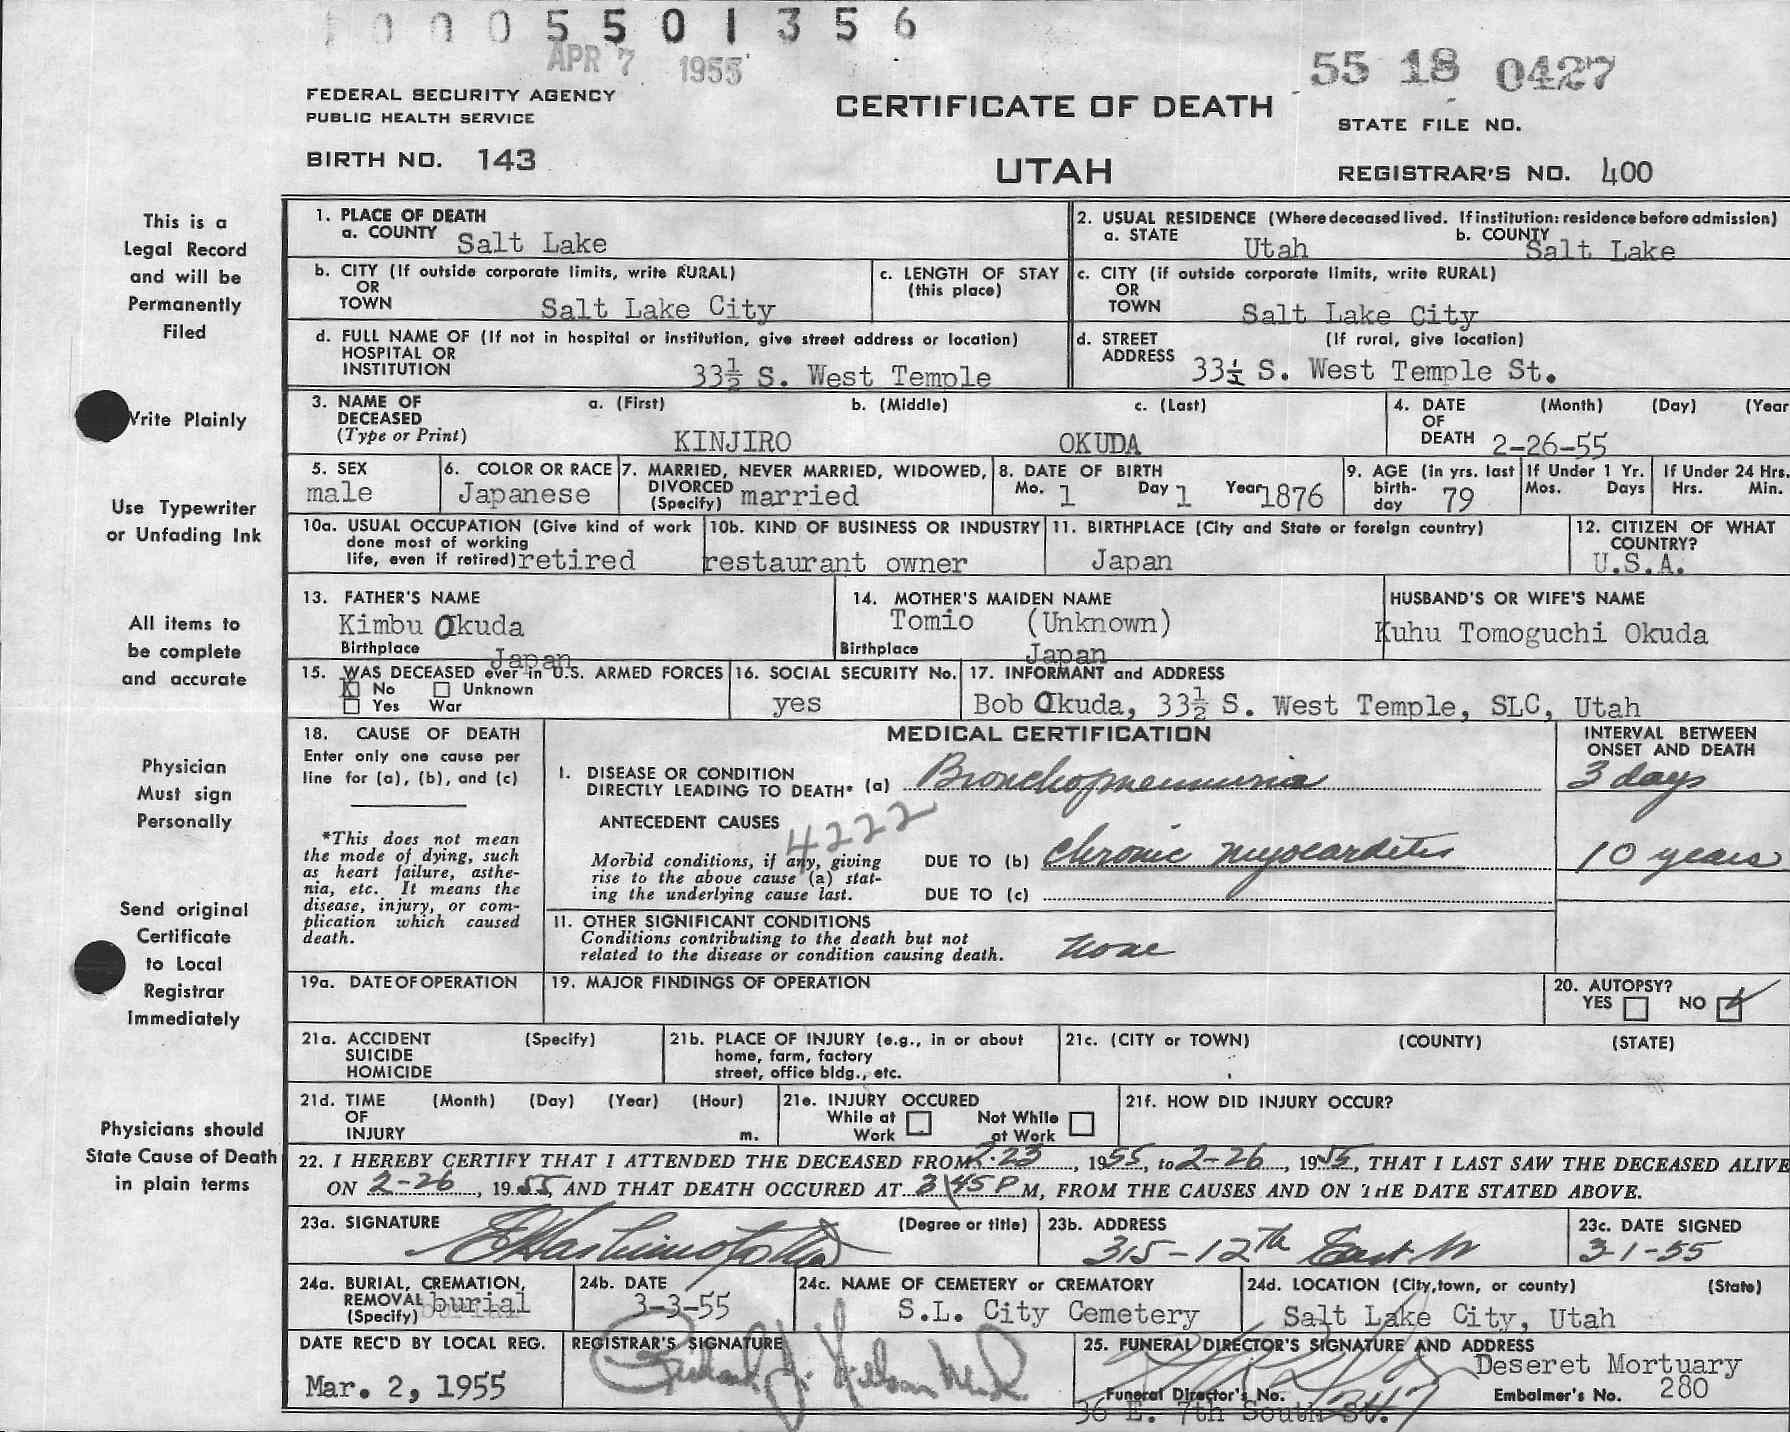 0005501356
APR 7 1955
55 18 0427
FEDERAL SECURITY AGENCY
PUBLIC HEALTH SERVICE
CERTIFICATE OF DEATH
STATE FILE NO.
BIRTH NO. 143
UTAH
REGISTRAR'S NO. 400
This is a
Legal Record
and will be
Permanently
Filed
Write Plainly
Use Typewriter
or Unfading Ink
All items to
be complete
and accurate
Physician
Must sign
Personally
Send original
Certificate
to Local
Registrar
Immediately
Physicians should
State Cause of Death
in plain terms
1. PLACE OF DEATH
a. COUNTY Salt Lake
2. USUAL RESIDENCE (Where deceased lived. If institution: residence before admission)
a. STATE Utah b. COUNTY Salt Lake
b. CITY (If outside corporate limits, write RURAL)
OR
TOWN Salt Lake City
c. LENGTH OF STAY
(this place)
c. CITY (if outside corporate limits, write RURAL)
OR
TOWN Salt Lake City
d. FULL NAME OF (If not in hospital or institution, give street address or location)
HOSPITAL OR
INSTITUTION 33½ S. West Temple
d. STREET (If rural, give location)
ADDRESS 33½ S. West Temple St.
3. NAME OF a. (First) b. (Middle) c. (Last)
DECEASED
(Type or Print) KINJIRO OKUDA
4. DATE (Month) (Day) (Year
OF
DEATH 2-26-55
5. SEX
male
6. COLOR OR RACE
Japanese
7. MARRIED, NEVER MARRIED, WIDOWED,
DIVORCED
(Specify) married
8. DATE OF BIRTH
Mo. 1 Day 1 Year 1876
9. AGE (in yrs. last
birth-
day 79
If Under 1 Yr.
Mos. Days
If Under 24 Hrs.
Hrs. Min.
10a. USUAL OCCUPATION (Give kind of work
done most of working
life, even if retired) retired
10b. KIND OF BUSINESS OR INDUSTRY
restaurant owner
11. BIRTHPLACE (City and State or foreign country)
Japan
12. CITIZEN OF WHAT
COUNTRY?
U.S.A.
13. FATHER'S NAME
Kimbu Okuda
Birthplace Japan
14. MOTHER'S MAIDEN NAME
Tomio (Unknown)
Birthplace Japan
HUSBAND'S OR WIFE'S NAME
Kuhu Tomoguchi Okuda
15. WAS DECEASED ever in U.S. ARMED FORCES
X No Unknown
Yes War
16. SOCIAL SECURITY No.
yes
17. INFORMANT and ADDRESS
Bob Okuda, 33½ S. West Temple, SLC, Utah
18. CAUSE OF DEATH
Enter only one cause per
line for (a), (b), and (c)
*This does not mean
the mode of dying, such
as heart failure, asthe-
nia, etc. It means the
disease, injury, or com-
plication which caused
death.
MEDICAL CERTIFICATION
INTERVAL BETWEEN
ONSET AND DEATH
I. DISEASE OR CONDITION
DIRECTLY LEADING TO DEATH* (a) Bronchopneumonia 3 days
ANTECEDENT CAUSES
4222
Morbid conditions, if any, giving
rise to the above cause (a) stat-
ing the underlying cause last.
DUE TO (b) Chronic myocarditis 10 years
DUE TO (c)
11. OTHER SIGNIFICANT CONDITIONS
Conditions contributing to the death but not
related to the disease or condition causing death. none
19a. DATE OF OPERATION
19. MAJOR FINDINGS OF OPERATION
20. AUTOPSY?
YES NO
21a. ACCIDENT (Specify)
SUICIDE
HOMICIDE
21b. PLACE OF INJURY (e.g., in or about
home, farm, factory
street, office bldg., etc.
21c. (CITY or TOWN) (COUNTY) (STATE)
21d. TIME (Month) (Day) (Year) (Hour)
OF
INJURY m.
21e. INJURY OCCURED
While at Not While
Work at Work
21f. HOW DID INJURY OCCUR?
22. I HEREBY CERTIFY THAT I ATTENDED THE DECEASED FROM 2-23, 1955, to 2-26, 1955, THAT I LAST SAW THE DECEASED ALIVE
ON 2-26, 1955, AND THAT DEATH OCCURED AT 3:45 P M, FROM THE CAUSES AND ON THE DATE STATED ABOVE.
23a. SIGNATURE (Degree or title)
E Hashimoto MD
23b. ADDRESS
315-12th East
23c. DATE SIGNED
3-1-55
24a. BURIAL, CREMATION,
REMOVAL
(Specify) burial
24b. DATE
3-3-55
24c. NAME OF CEMETERY or CREMATORY
S.L. City Cemetery
24d. LOCATION (City, town, or county) (State)
Salt Lake City, Utah
DATE REC'D BY LOCAL REG.
Mar. 2, 1955
REGISTRAR'S SIGNATURE
25. FUNERAL DIRECTOR'S SIGNATURE AND ADDRESS
Deseret Mortuary
Funeral Director's No. Embalmer's No. 280
36 E. 7th South St.